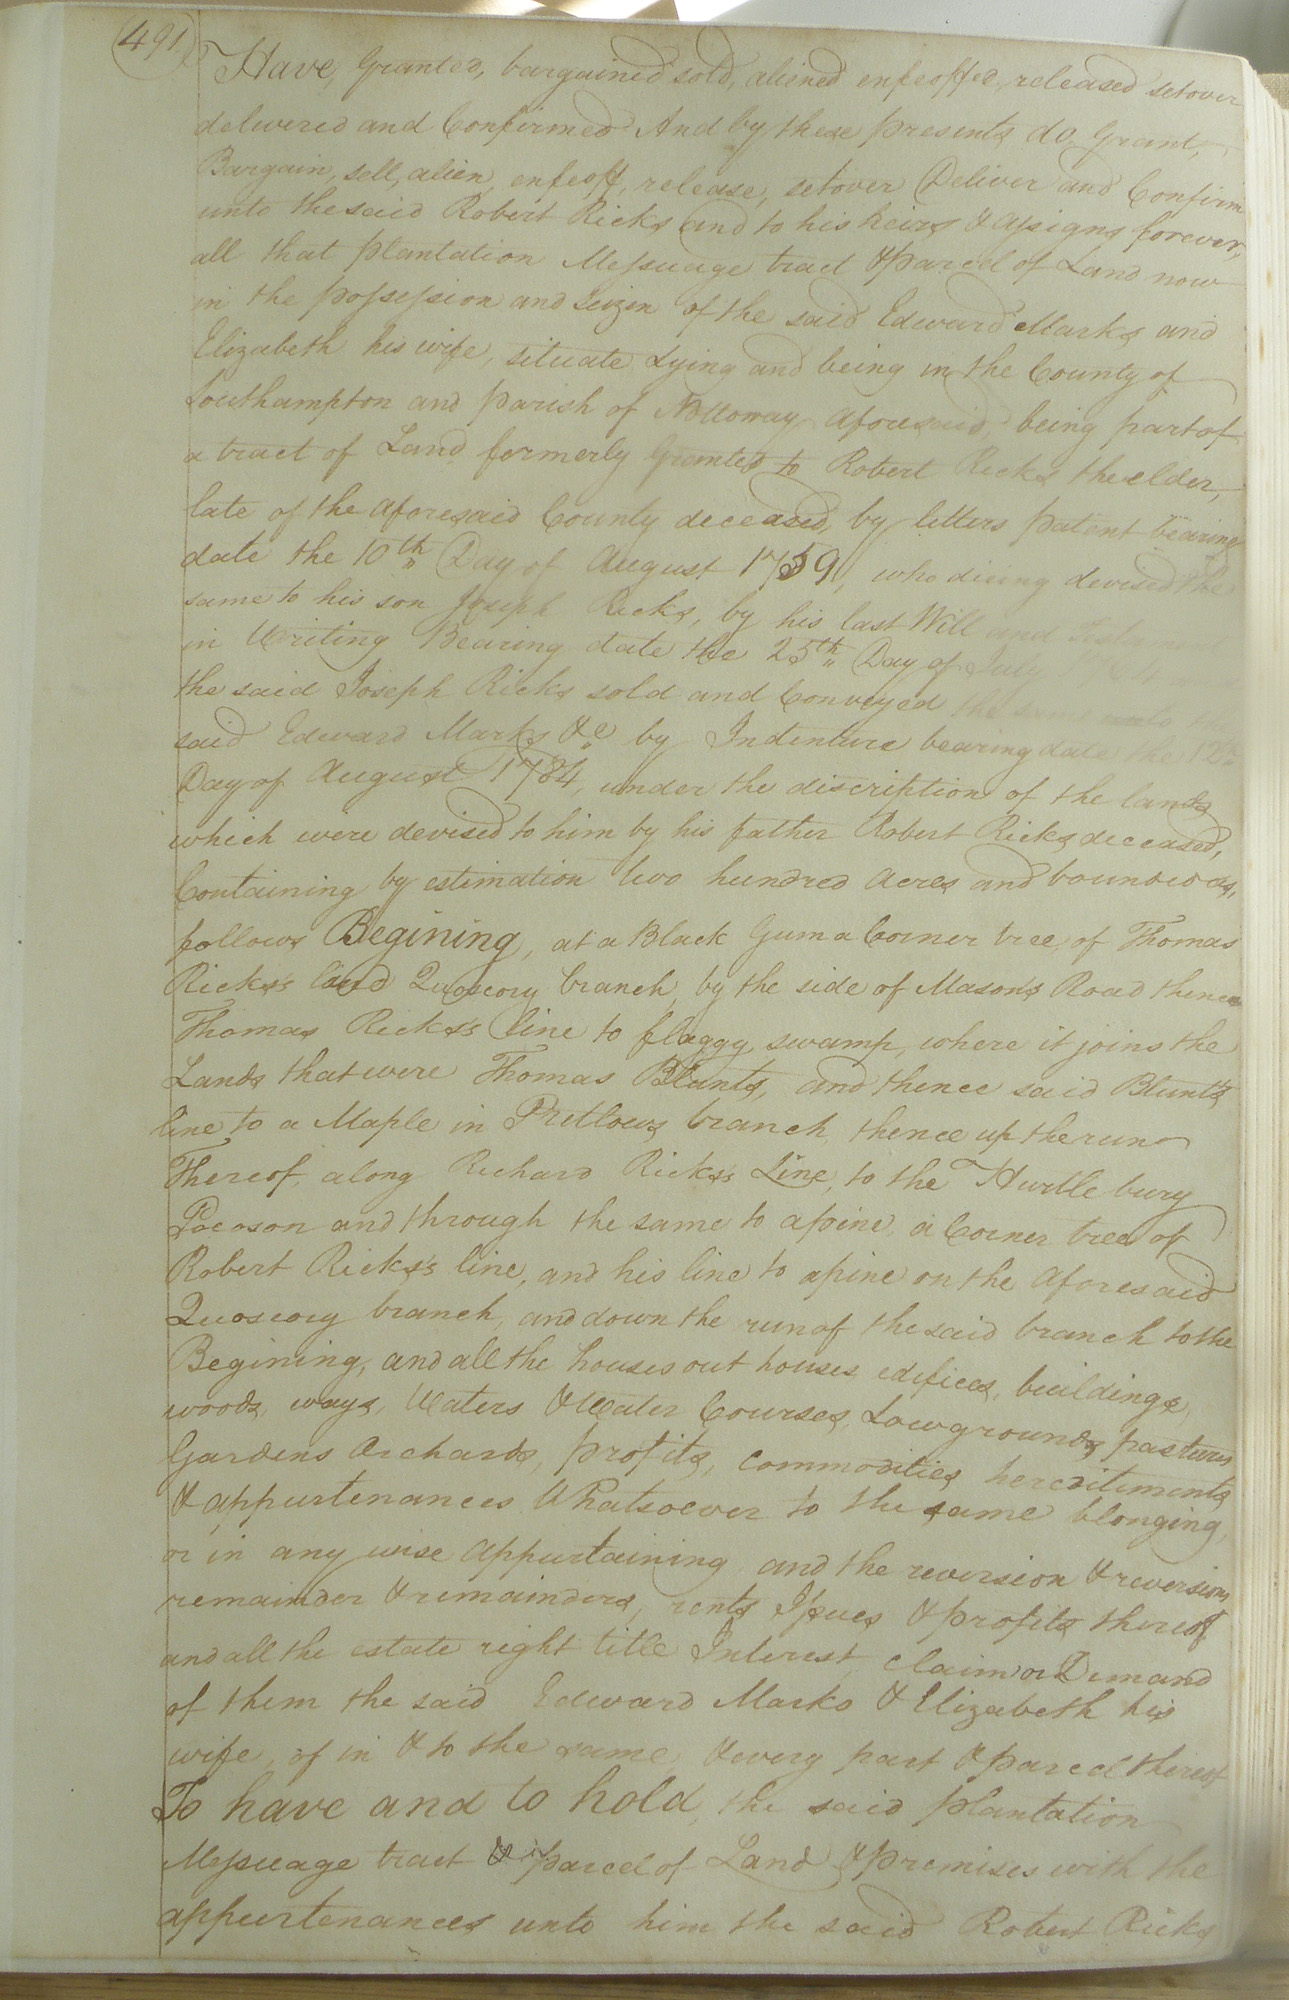 491
Have, Granted, bargained sold, aliened enfeoffed, released setover
delivered and Confirmed And by these presents do, Grant,
Bargain, sell, alien, enfeoff, release, setover Deliver and Confirm
unto the said Robert Ricks and to his heirs & assigns forever,
all that plantation Messuage tract & parcel of Land now
in the possession and seizen of the said Edward Marks and
Elizabeth his wife, situate Lying and being in the County of
Southampton and parish of Nottoway aforesaid, being part of
a tract of Land formerly Granted to Robert Ricks the elder,
late of the aforesaid County deceased, by letters patent bearing
date the 10th Day of August 1759, who dieing devised the
same to his son Joseph Ricks, by his last Will and
in Writing Bearing date the 25th Day of July
the said Joseph Ricks sold and Conveyed the same unto the
said Edward Marks &c by Indenture bearing date the 12th
Day of August 1784, under the discription of the lands
which were devised to him by his father Robert Ricks deceased,
Containing by estimation two hundred acres and bounded as,
follows Begining, at a Black Gum a Corner tree, of Thomas
Ricks's land Quoscory branch, by the side of Masons Road thence
Thomas Ricks's line to flaggy swamp, where it joins the
Lands that were Thomas Blunts, and thence said Blunts
line to a Maple in Pretlows branch, thence up the run
Thereof, along Richard Ricks's Line, to the Hurtle bury
Pocoson and through the same to a pine, a Corner tree of
Robert Ricks's line, and his line to a pine on the aforesaid
Quoscory branch, and down the run of the said branch to the
Begining, and all the houses out houses edifices, buildings,
woods, ways, Waters & Water Courses, Lowgrounds, pastures
Gardens Orchards, profits, commodities hereditiments
& appurtenances Whatsoever to the same blonging,
or in any wise appurtaining and the reversion & reversions
remainder & remainders, rents Issues & profits thereof
and all the estate right title Interest, claim or Demand
of them the said Edward Marks & Elizabeth his
wife, of in & to the same, & every part & parcel thereof
To have and to hold, the said plantation
Messuage tract & parcel of Land & premises with the
appurtenances unto him the said Robert Ricks